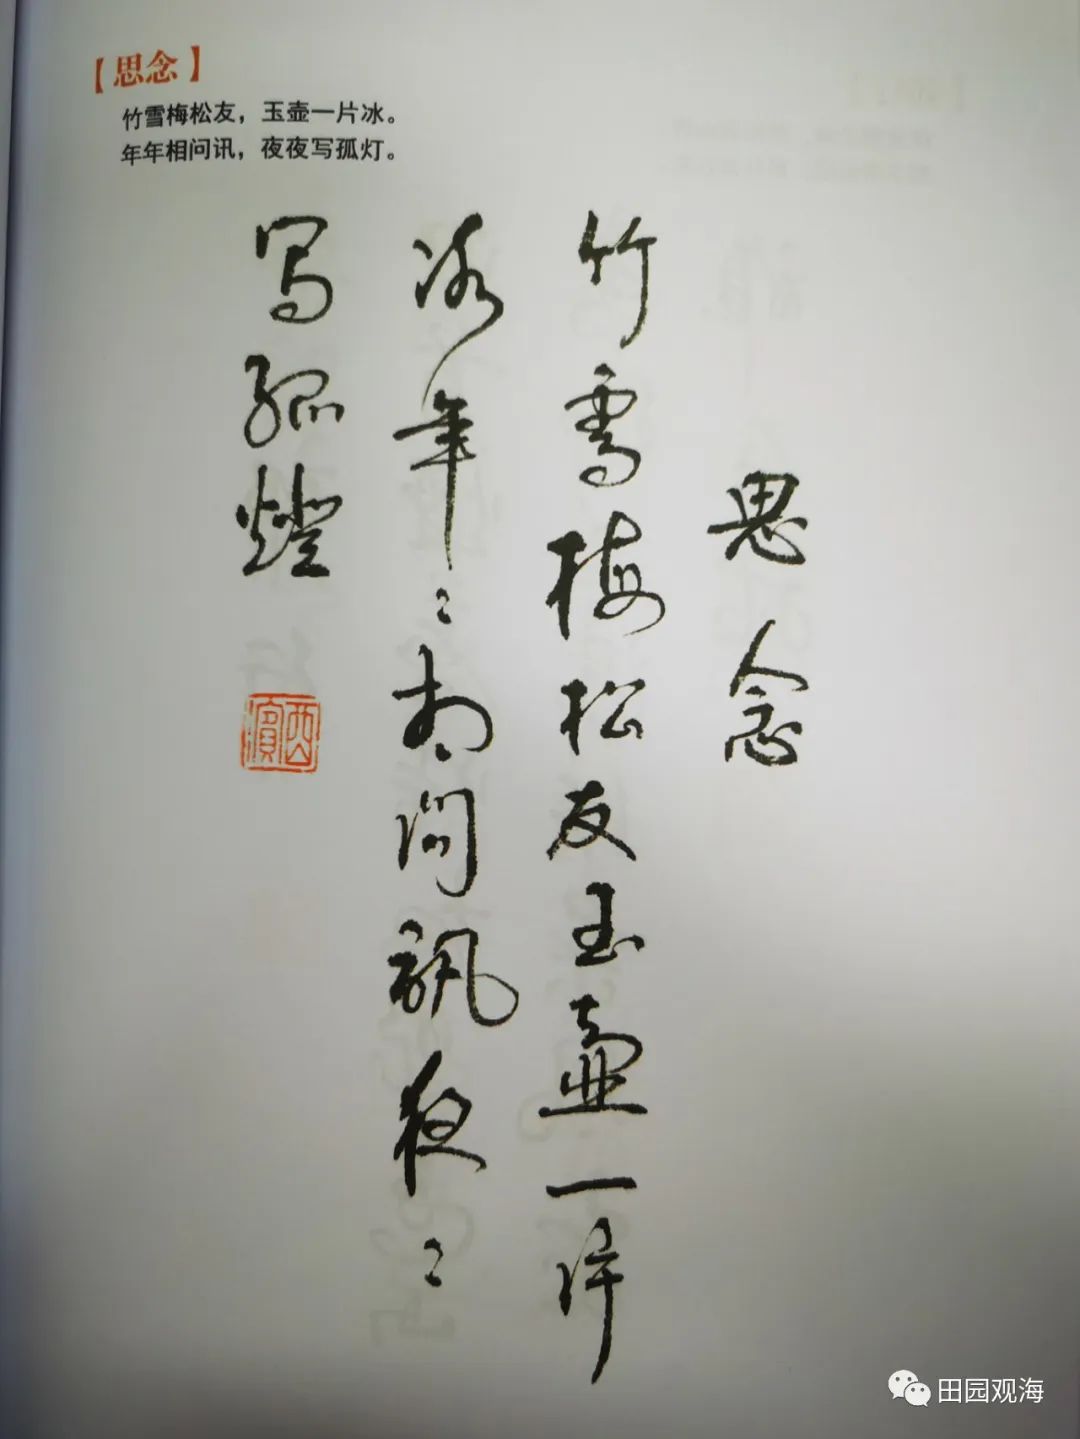 【思念】
竹雪梅松友，玉壶一片冰。
年年相问讯，夜夜写孤灯。
思念
竹雪梅松友玉壺一片
冰年〻相问訊夜〻
写孤燈
西濱
田园观海